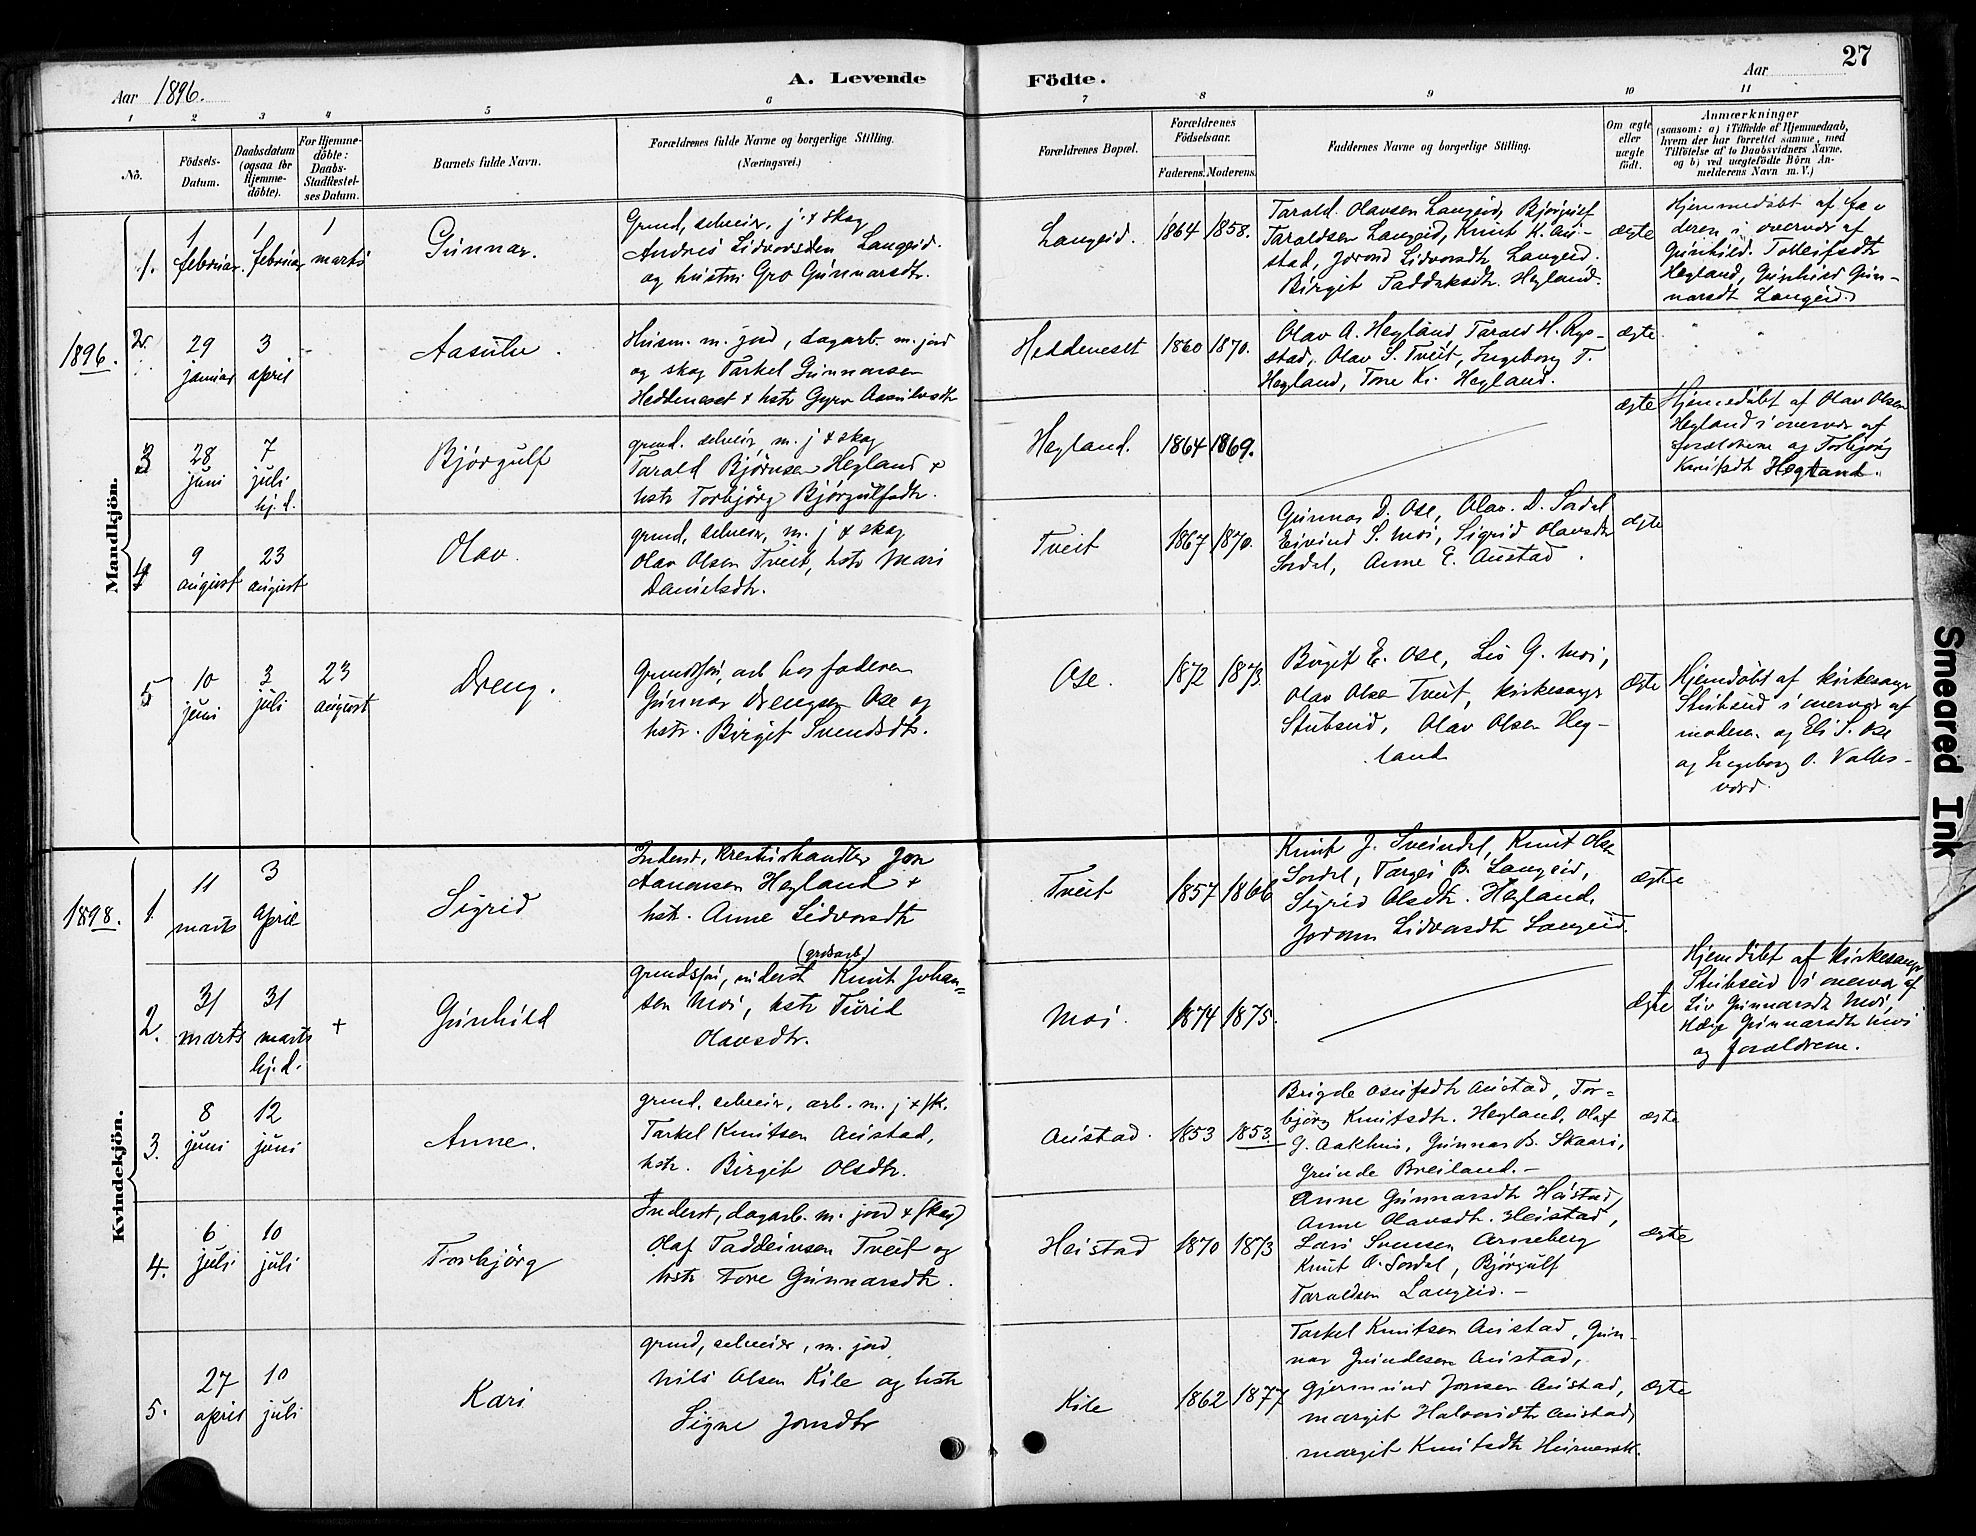 27
Aar 1896.
A. Levende
Födte.
Aar
1 2 3 4 5 6
7 8 9 10 11
No.
Födsels-
Datum.
Daabsdatum
(ogsaa för
Hjemme-
döbte).
For Hjemme-
döbte:
Daabs-
Stadfæstel-
ses Datum.
Barnets fulde Navn.
Forældrenes fulde Navne og borgerlige Stilling.
(Næringsvei.)
Forældrenes Bopæl.
Forældrenes
Födselsaar.
Faderens. Moderens.
Faddernes Navne og borgerlige Stilling.
Om ægte
eller
uægte
födt.
Anmærkninger
(saasom: a) i Tilfælde af Hjemmedaab,
hvem der har forrettet samme, med
Tilföielse af to Daabsvidners Navne,
og b) ved uægtefödte Börn An-
melderens Navn m. V.)
Mandkjön.
1896.
1.
1
februar.
1
februar
1
marts
Gunnar.
Grund, selveier, j. + skog
Andres Lidvorsden Langeid.
og hustru Gro Gunnarsdtr.
Langeid.
1864 1858.
Tarald Olavsen Langeid, Bjørgulf
Taraldsen Langeid, Knut K. Au-
stad, Jorond Lidvorsdtr Langeid.
Birgit Taddaksdtr. Hegland.
ægte
Hjemmedøbt af fa-
deren i overvær af
Gunhild Tolleifsdtr
Hegland, Gunhild Gun-
narsdt Langeid.
2.
29
januar
3
april
Aasulv.
Husm. m. jord, dagarb. m. jord
og skog Tarkel Gunnarsen
Heddeneset + hstr Gyro Aasulvsdtr
Heddeneset
1860 1870.
Olav A. Hegland, Tarald H. Ryg-
stad, Olav S. Tveit, Ingeborg T.
Hegland, Tone Kr. Hegland.
ægte
3
28
juni
7
juli
hj. d.
Bjørgulf
grund. selveier, m. j + skog
Tarald Bjørnsen Hegland +
hstr Torbjørg Bjørgulfsdtr.
Hegland.
1864 1869.
ægte
Hjemmedøbt af Olav Olsen
Hegland i overvær af
forældrene og Torbjørg
Knutsdtr Hegland.
4
9
august
23
august
Olav.
grund, selveier, m. j + skog
Olav Olsen Tveit, hstr Mari
Danielsdtr.
Tveit
1867 1870.
Gunnar D. Ose, Olav. D. Sordal
Eivind S. Moi, Sigrid Olavsdtr
Sordal, Anne E. Austad.
ægte
5
10
juni
3
juli
23
august
Dreng.
Grundsøn, arb hos faderen
Gunnar Drengsen Ose og
hstr. Birgit Svendsdtr.
Ose.
1872 1873.
Birgit E. Ose, Liv G. Moi,
Olav Olsen Tveit, kirkesanger
Stubseid, Olav Olsen Heg-
land
Ægte
Hjemdøbt af kirkesanger
Stubseid i overvær af
moderen og Eli S. Ose
og Ingeborg O. Valles-
værd.
Kvindekjön.
1898.
1.
11
marts
3
April
Sigrid
Inderst, kreaturhandler Jon
Aanonsen Hegland +
hstr. Anne Lidvorsdtr
Tveit
1857 1866
Knut J. Sveindal, Knut Olsen
Sordal, Targei B. Langeid,
Sigrid Olsdtr. Hegland,
Joronn Lidvorsdtr Langeid.
ægte
2.
31
marts
31
marts
hj. d.
+
Gunhild
(grdsarb)
grundsøn, inderst Knut Johan-
sen Moi, hstr Turid
Olavsdtr.
Moi.
1874 1875.
Ægte
Hjemdøbt af kirkesanger
Stubseid i overvær af
Liv Gunnarsdtr Moi,
Hæge Gunnarsdtr Moi
og forældrene.
3.
8
juni
12
juni
Anne.
grund, selveier, arb. m. j + sk.
Tarkel Knutsen Austad,
hstr. Birgit Olsdtr.
Austad.
1853 1853.
Brigde Osufsdtr Austad, Tor-
bjørg Knutsdtr. Hegland, Olaf
G. Aakhus, Gunnar B. Skaari,
Grunde Breiland. -
ægte
4.
6
juli
10
juli
Torbjørg
Inderst, dagarb. m. jord + skog
Olaf Taddeivsen Tveit og
hstr Tore Gunnarsdtr.
Heistad
1870 1873
Anne Gunnarsdtr Heistad,
Anne Olavsdtr. Heistad,
Lars Svensen Arneberg
Knut O. Sordal, Bjørgulf
Taraldsen Langeid. -
ægte
5.
27
april
10
juli
Kari
grund, selveier, m. jord
Nils Olsen Kile og hstr
Signe Jonsdtr
Kile
1862 1877
Tarkel Knutsen Austad, Gun-
nar Grundesen Austad,
Gjermund Jonsen Austad,
Margit Halvorsdtr Austad,
Margit Knutsdtr
Ægte
Smeared Ink